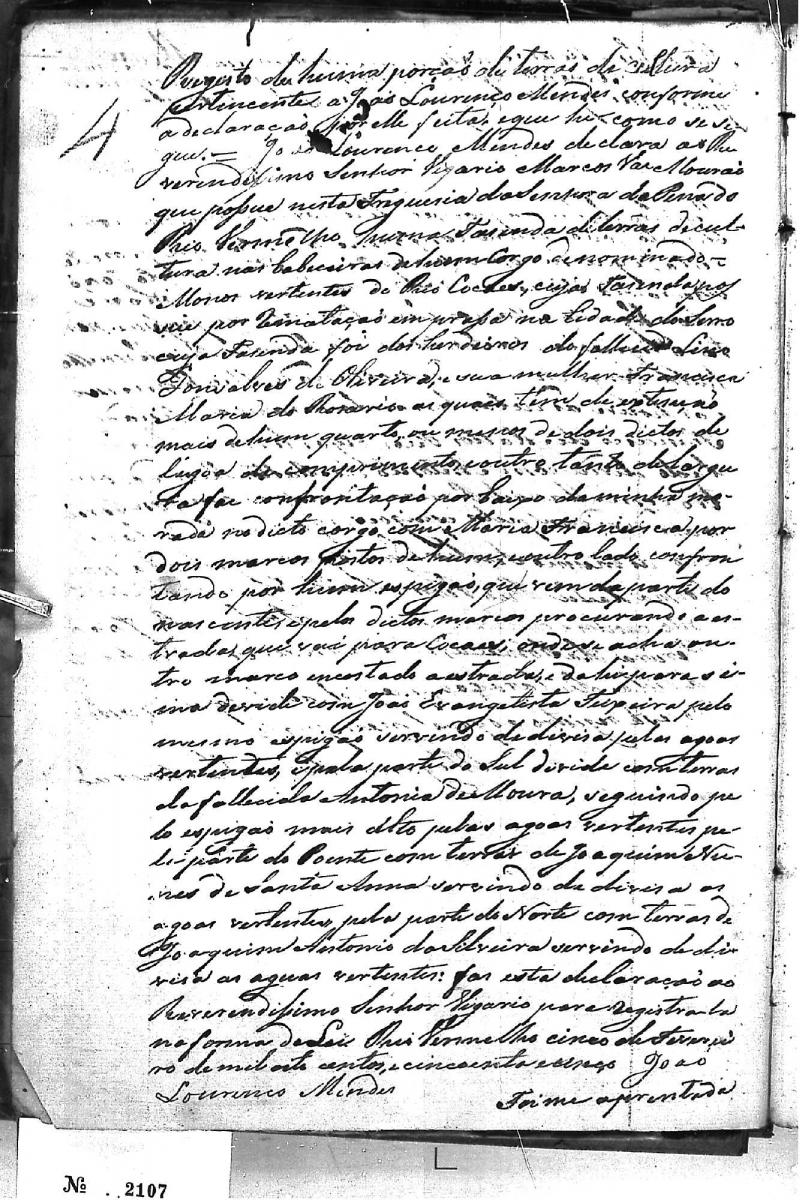 4
Registo de huma porção de terras de cultura
pertencente a João Lourenço Mendes, conforme
a declaração por elle feita, e que he como se se
gue. = João Lourenço Mendes declara ao Re
verendissimo Senhor Vigario Marcos Vas Mourão
que possue nesta Freguesia da Senhora da Pena do
Rio Vermelho huma Fasenda de terras de cul-
tura nas Cabeceiras de hum Corgo denominado =
Monos vertentes do Rio Cocaes, cuja Fasenda
por rematação em prasa na Cidade do Serro
cuja Fasenda foi dos herdeiros do fallecido Lino
Gonsalves de Oliveira, e sua mulher Francisca
Maria do Rosario as quaes tem de extenção
mais de hum quarto, ou menos de dois dictos de
legoa de comprimento, e outro tanto de largu
ra fas confrontação por baixo da minha mo-
rada no dicto corgo com Maria Francisca, por
dois marcos postos de hum, e outro lado confron
tando por hum espigão, que vem da parte do
nascente, e pelo dictos marcos procurando a es-
trada, que vai para Cocaes, onde se acha ou-
tro marco encostado a estrada, e da lix para si-
ma devide com João Evangelista Teixeira pelo
mesmo espigão servindo de divisa pelas agoas
vertentes, e pela parte do Sul divide com terras
da fallecida Antonia de Moura, seguindo pe
lo espigão mais alto pelas agoas vertentes pe-
la parte do Poente com terras de Joaquim Nu-
nes de Santa Anna servindo de divisa as
agoas vertentes, pela parte do Norte com terras de
Joaquim Antonio da Silveira servindo de di
visa as aguas vertentes: fas esta declaração ao
Reverendissimo Senhor Vigario para registrala
na forma da Lei Rio Vermelho cinco de Feverei
ro de mil oito centos, e cincoenta e cinco João
Lourenço Mendes
Foi me aprentada
Nº . . 2107